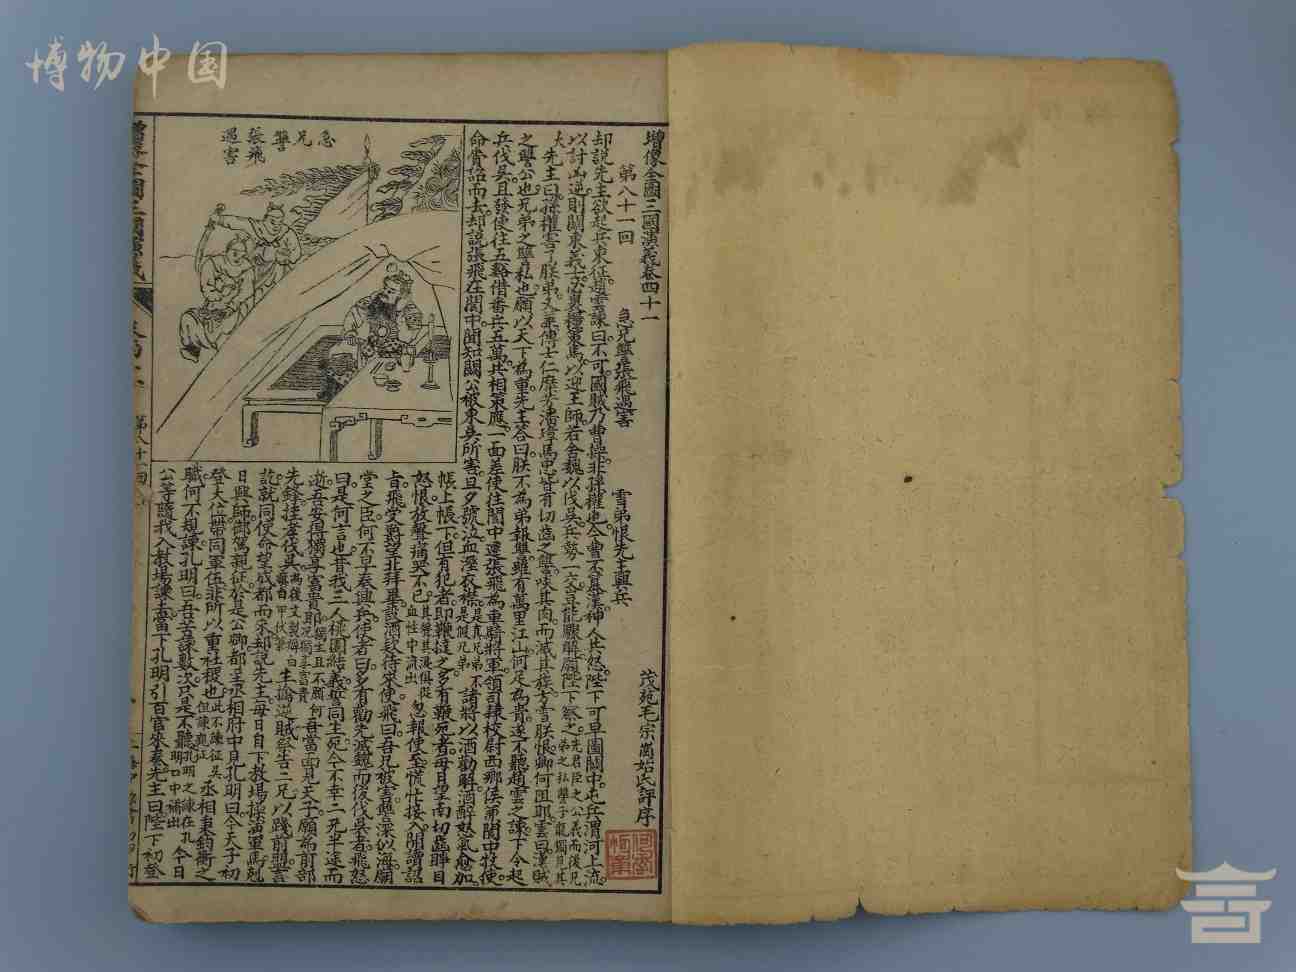 博物中国
增像全圖三國演義卷四十一
第八十一回 急兄讐張飛遇害 雪弟恨先主興兵
茂苑毛宗崗始氏評序
却說先主欲起兵東征趙雲諫曰不可國賊乃曹操非孫權也今曹丕簒漢神人共怒陛下可早圖關中屯兵渭河上流
以討凶逆則關東義士必裹糧策馬以迎王師若舍魏以伐吳兵勢一交豈能驟解願陛下察之先君臣之公義而後兄弟之私讐子龍獨見其
大先主曰孫權害了朕弟又兼傅士仁糜芳潘璋馬忠皆有切齒之讐啖其肉而滅其族方雪朕恨卿何阻耶雲曰漢賊
之讐公也兄弟之讐私也願以天下為重先主答曰朕不為弟報讐雖有萬里江山何足為貴遂不聽趙雲之諫下令起
兵伐吳且發使往五谿借番兵五萬共相策應一面差使往閬中遷張飛為車騎將軍領司隸校尉西鄉侯兼閬中牧使
命賫詔而去却說張飛在閬中聞知關公被東吳所害旦夕號泣血溼衣襟是真兄弟不是假兄弟諸將以酒勸解酒醉怒氣愈加
帳上帳下但有犯者即鞭撻之多有鞭死者每日望南切齒睜目
怒恨放聲痛哭不已忽報使至慌忙接入開讀詔
旨飛受爵望北拜畢設酒欵待來使飛曰吾兄被害讐深似海廟
堂之臣何不早奏興兵使者曰多有勸先滅魏而後伐吳者飛怒
曰是何言也昔我三人桃園結義誓同生死今不幸二兄半途而
逝吾安得獨享富貴耶吾當面見天子願為前部
先鋒挂孝伐吳生擒逆賊祭告二兄以踐前盟言
訖就同使命望成都而來却說先主每日自下教場操演軍馬剋
日興師御駕親征於是公卿都至丞相府中見孔明曰今天子初
登大位親統軍伍非所以重社稷也丞相秉鈞衡之
職何不規諫孔明曰吾苦諫數次只是不聽今日
公等隨我入教場諫去當下孔明引百官來奏先主曰陛下初登
急兄讐張飛遇害
第八十一回